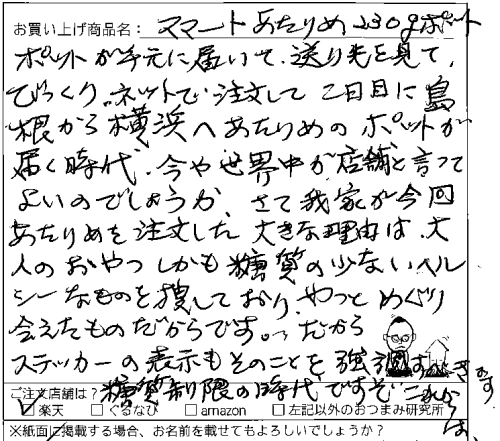 お買い上げ商品名：ママートあたりめ230gポット
ポットが手元に届いて、送り先を見て、
びっくり。ネットで注文して2日目に島
根から横浜へあたりめのポットが
届く時代。今や世界中が店舗と言って
よいのでしょうか。さて我家が今回
あたりめを注文した大きな理由は、大
人のおやつしかも糖質の少ないヘル
シーなものを捜しており、やっとめぐり
会えたものだからです。だから
ステッカーの表示もそのことを強調すべきです。
ご注文店舗は？糖質制限の時代ですぞこれからは、
楽天 □ぐるなび □amazon □左記以外のおつまみ研究所
※紙面に掲載する場合、お名前を載せてもよろしいでしょうか？